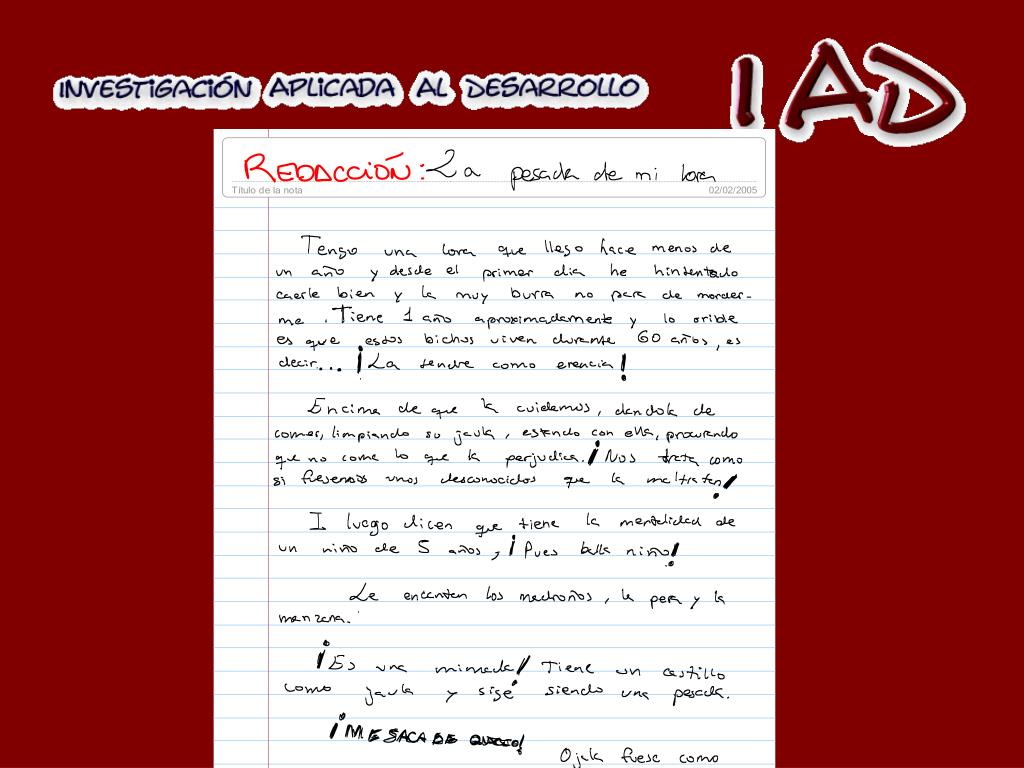 INVESTIGACIÓN APLICADA AL DESARROLLO
IAD
REDACCIÓN: La pesada de mi lora
Título de la nota 02/02/2005
Tengo una lora que llego hace menos de
un año y desde el primer dia he hintentado
caerle bien y la muy burra no para de morder-
me. Tiene 1 año aproximadamente y lo orible
es que estos bichos viven durante 60 años, es
decir... ¡La tendre como erencia!
Encima de que la cuidamos, dandola de
comer, limpiando su jaula, estando con ella, procurando
que no come lo que la perjudica. ¡Nos trata como
si fuesemos unos desconocidos que la maltratan!
I luego dicen que tiene la mentalidad de
un niño de 5 años, ¡Puesballa niño!
Le encantan los madroños, la pera y la
manzana.
¡Es una mimada! Tiene un castillo
como jaula y sige siendo una pesada.
¡ME SACA DE QUICIO!
Ojala fuese como